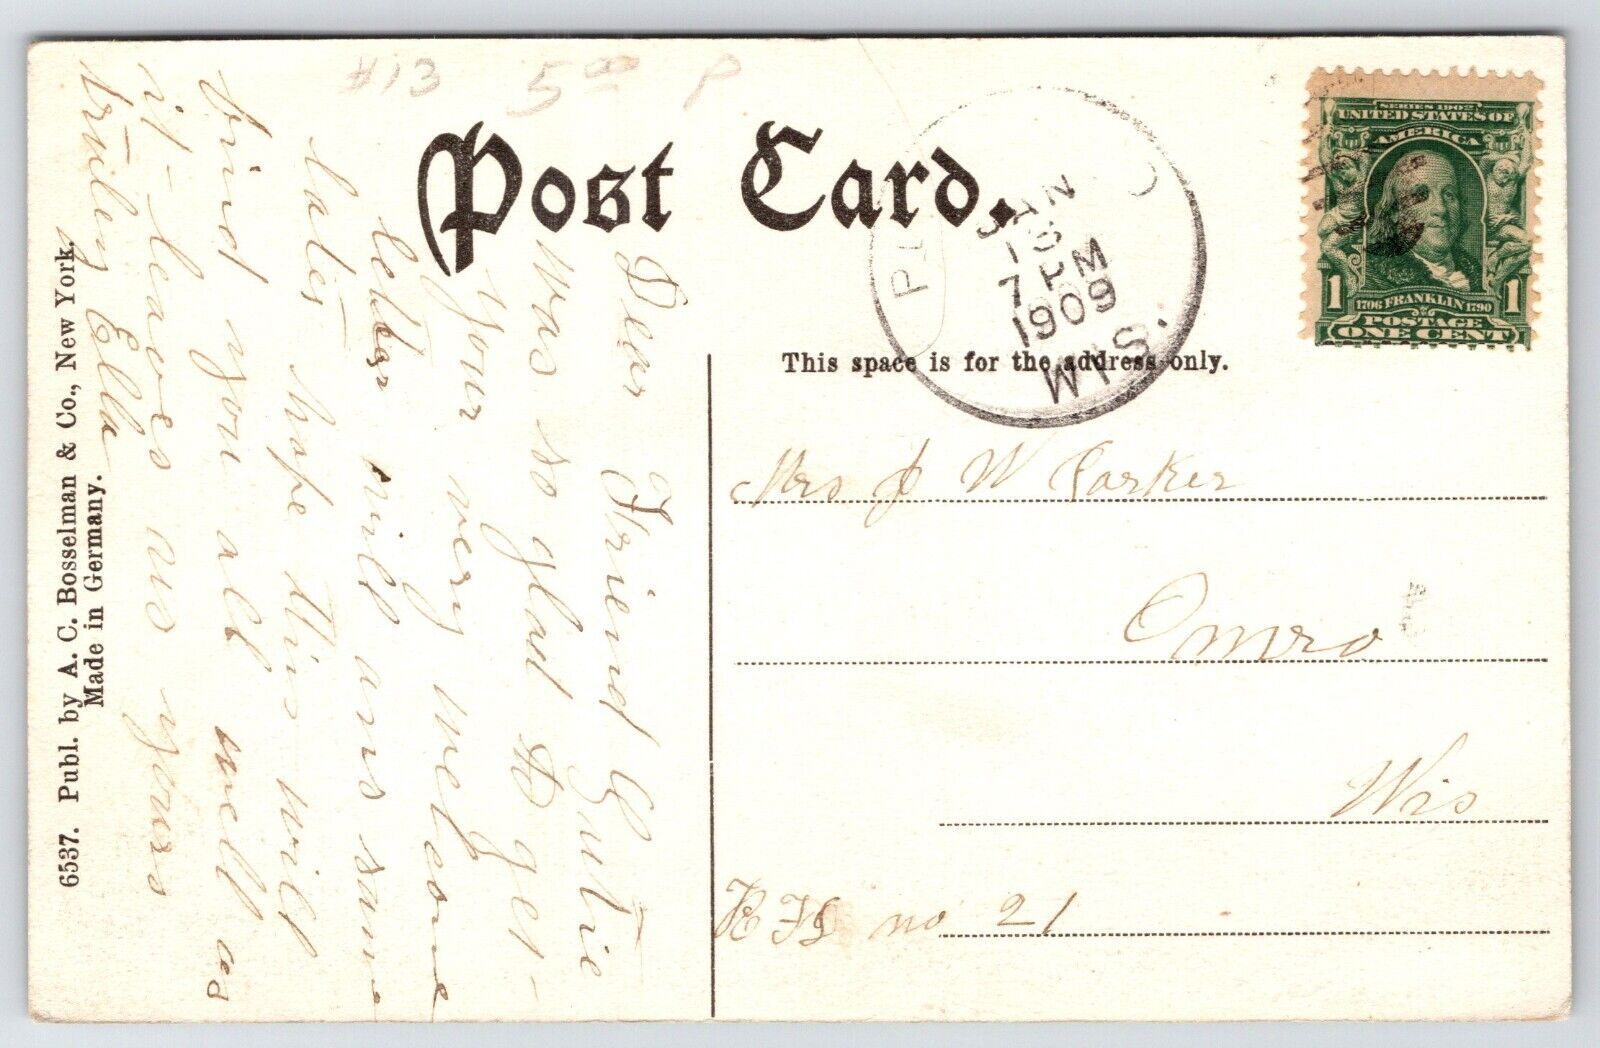 #13 5 00 P
Post Card.
SERIES 1902
UNITED STATES OF
AMERICA
1 1706 FRANKLIN 1790 1
POSTAGE
ONE CENT
JAN
7 PM
1909
WIS.
This space is for the address only.
Mrs J W Parker
Omro
Wis
RFD no 21
Dear Friend Gutie
was so glad to get-
your very welcome
letter will ans same
later hope this will
find you all well as
it-leaves us yours
truley Ella
6537. Publ. by A. C. Bosselman & Co., New York.
Made in Germany.